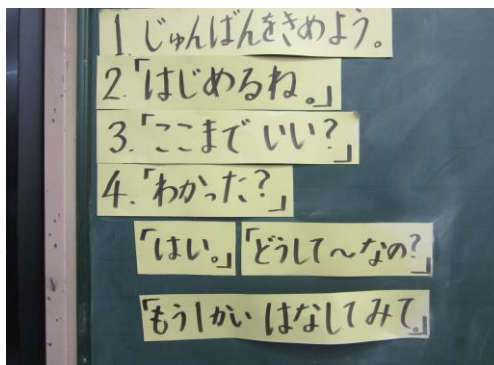 1.じゅんばんをきめよう。
2.「はじめるね。」
3.「ここまで いい?」
4.「わかった?」
「はい。」「どうして〜なの?」
「もう1かい はなしてみて。」